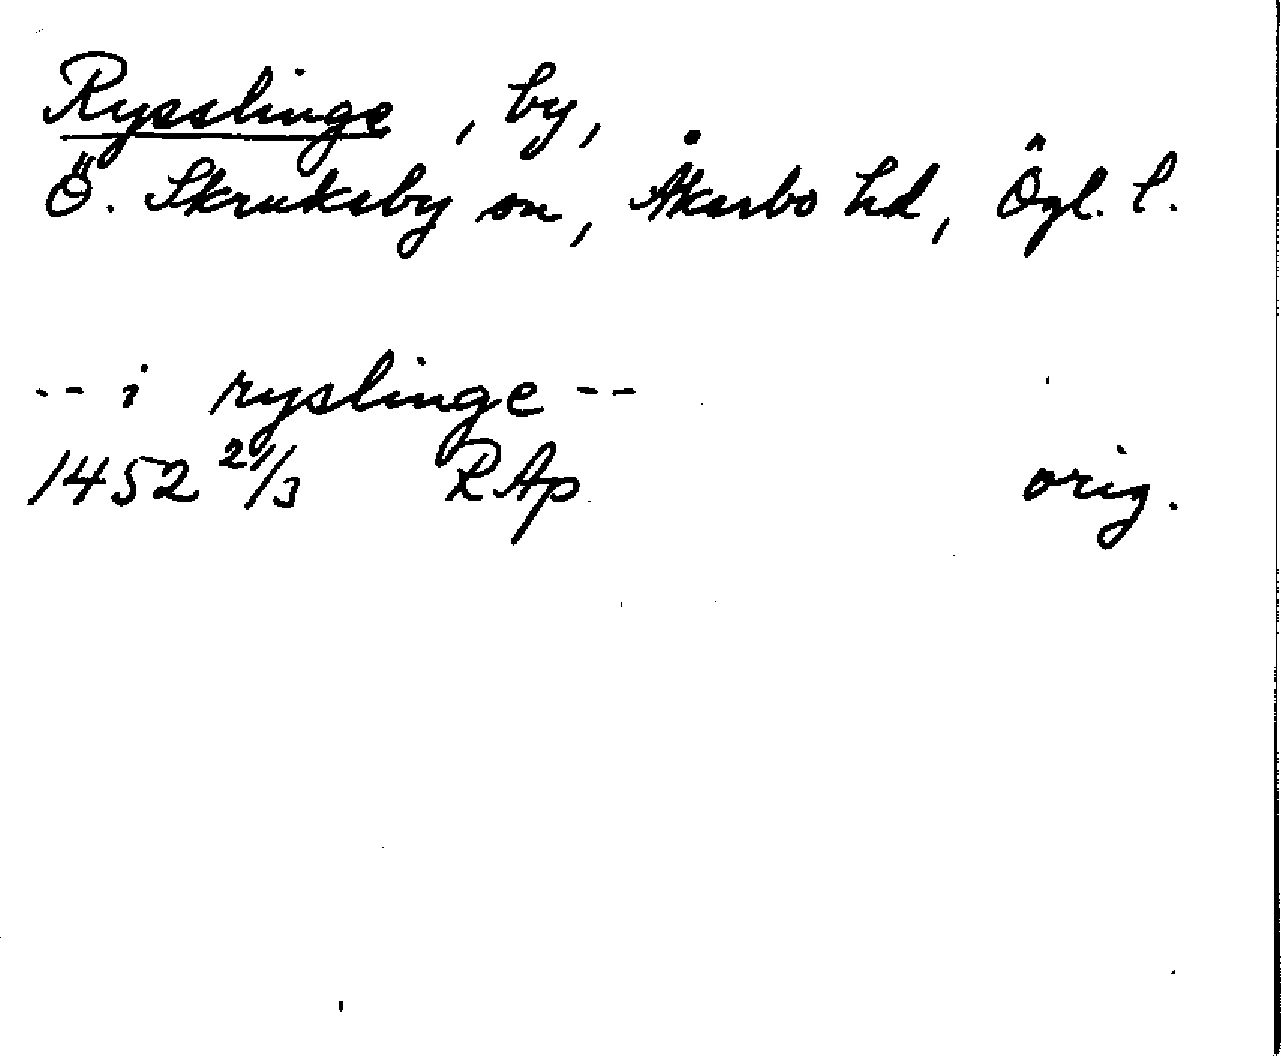 Rysslinge, by,
Ö. Skrukeby sn, Åkerbo hd, Ögl. l.
-- i ryslinge --
1452 21/3 RAp orig.